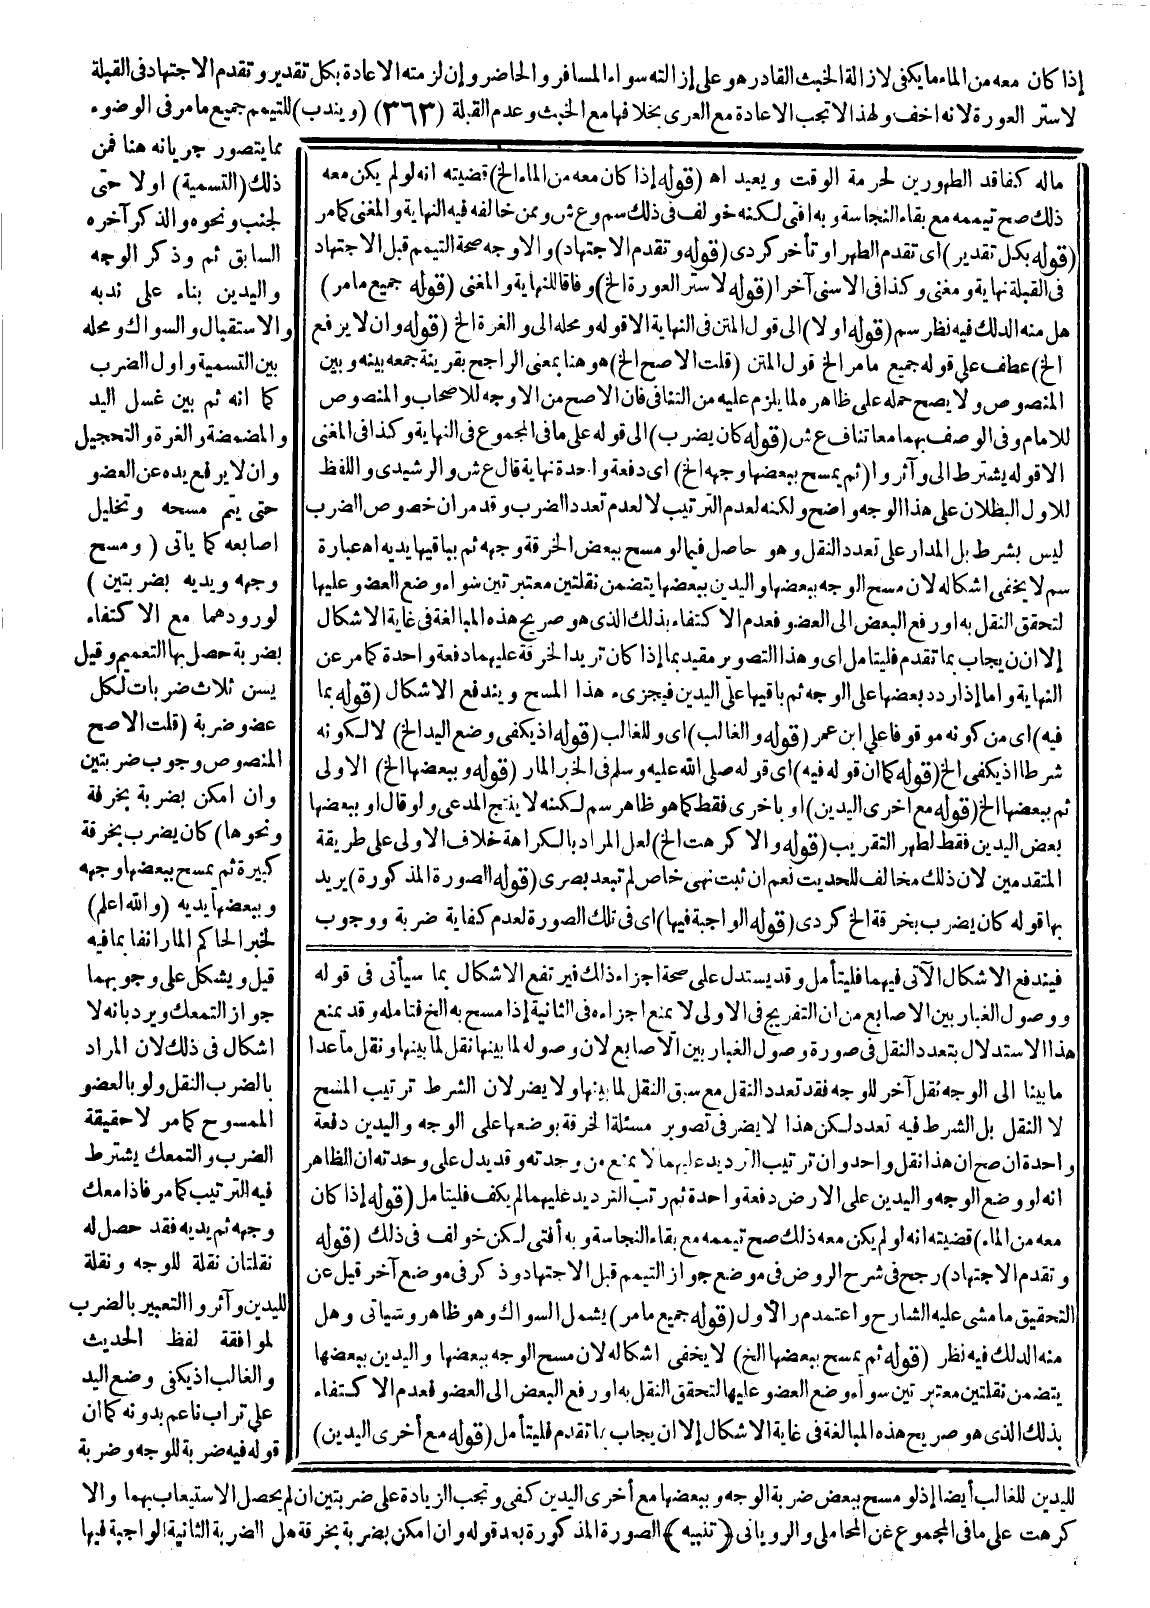 إذا كان معه من الماء ما يكفى لازالة الخبث القادر هو على إزالته سواء المسافر والحاضر وإن لزمته الاعادة بكل تقدير وتقدم الاجتهاد فى القبلة
لا ستر العورة لانه اخف ولهذا لا تجب الاعادة مع العرى بخلافها مع الخبث وعدم القبلة (٣٦٣) (ويندب) للتيمم جميع مامر فى الوضوء
مما يتصور جريانه هنا فمن
ذلك (التسمية) اولا حتى
لجنب ونحوه والذكر آخره
السابق ثم وذكر الوجه
واليدين بناء على ندبه
والاستقبال والسواك ومحله
بين التسمية واول الضرب
كما انه ثم بين غسل اليد
والمضمضة والغرة والتحجيل
وان لا يرفع يده عن العضو
حتى يتم مسحه وتخليل
اصابعه كما ياتى (ومسح
وجهه ويديه بضربتين)
لورودهما مع الاكتفاء
بضربة حصل بها التعميم وقيل
يسن ثلاث ضربات لكل
عضو ضربة (قلت الاصح
المنصوص وجوب ضربتين
وان امكن بضربة بخرقة
ونحوها) كان يضرب بخرقة
كبيرة ثم يمسح ببعضها وجهه
وببعضها يديه (والله اعلم)
لخبر الحاكم المار انفا بما فيه
قيل ويشكل على وجوبهما
جواز التمعك ويرد بانه لا
اشكال فى ذلك لان المراد
بالضرب النقل ولو بالعضو
الممسوح كما مر لا حقيقة
الضرب والتمعك يشترط
فيه الترتيب كما مر فاذا معك
وجهه ثم يديه فقد حصل له
نقلتان نقلة للوجه ونقلة
لليدين وآثروا التعبير بالضرب
لموافقة لفظ الحديث
والغالب اذ يكفى وضع اليد
على تراب ناعم بدونه كما ان
قوله فيه ضربة للوجه وضربة
ماله كفاقد الطهورين لحرمة الوقت ويعيد اه (قوله إذا كان معه من الماء الخ) قضيته انه لو لم يكن معه
ذلك صح تيممه مع بقاء النجاسة وبه افتى لكنه خولف فى ذلك سم وع ش وممن خالفه فيه النهاية والمغنى كما مر
(قوله بكل تقدير) اى تقدم الطهر او تأخر كردى (قوله وتقدم الاجتهاد) والاوجه صحة التيمم قبل الاجتهاد
فى القبلة نهاية ومغنى وكذا فى الاسنى آخرا (قوله لا ستر العورة الخ) وفاقا للنهاية والمغنى (قوله جميع ما مر)
هل منه الدلك فيه نظر سم (قوله اولا) الى قول المتن فى النهاية الا قوله ومحله الى والغرة الخ (قوله وان لا يرفع
الخ) عطف على قوله جميع مامر الخ قول المتن (قلت الاصح الخ) هو هنا بمعنى الراجح بقرينة جمعه بينه وبين
المنصوص ولا يصح حمله على ظاهره لما يلزم عليه من التنافى فان الاصح من الاوجه للاصحاب والمنصوص
للامام وفى الوصف بهما معا تناف ع ش (قوله كان يضرب) الى قوله على ما فى المجموع فى النهاية وكذا فى المغنى
الا قوله يشترط الى وآثروا (ثم يمسح ببعضها وجهه الخ) اى دفعة واحدة نهاية قال ع ش والرشيدى واللفظ
للاول البطلان على هذا الوجه واضح ولكنه لعدم الترتيب لا لعدم تعدد الضرب وقد مر ان خصوص الضرب
ليس بشرط بل المدار على تعدد النقل وهو حاصل فيما لو مسح ببعض الخرقة وجهه ثم بباقيها يديه اه عبارة
سم لا يخفى اشكاله لان مسح الوجه ببعضها واليدين ببعضها يتضمن نقلتين معتبرتين سواء وضع العضو عليها
لتحقق النقل به او رفع البعض الى العضو فعدم الاكتفاء بذلك الذى هو صريح هذه المبالغة فى غاية الاشكال
إلا ان يجاب بما تقدم فليتامل اى وهذا التصوير مقيد بما إذا كان تريد الخرقة عليهما دفعة واحدة كما مر عن
النهاية واما إذا ردد بعضها على الوجه ثم باقيها على اليدين فيجزىء هذا المسح ويندفع الاشكال (قوله بما
فيه) اى من كونه موقوفا على ابن عمر (قوله والغالب) اى وللغالب (قوله اذ يكفى وضع اليد الخ) لا لكونه
شرطا اذ يكفى الخ (قوله كما ان قوله فيه) اى قوله صلى الله عليه وسلم فى الخبر المار (قوله وببعضها الخ) الاولى
ثم ببعضها الخ (قوله مع اخرى اليدين) او باخرى فقط كما هو ظاهر سم لكنه لا ينتج المدعى ولو قال او ببعضها
بعض اليدين فقط لظهر التقريب (قوله والا كرهت الخ) لعل المراد بالكراهة خلاف الاولى على طريقة
المتقدمين لان ذلك مخالف للحديث نعم ان ثبت نهى خاص لم تبعد بصرى (قوله الصورة المذكورة) يريد
بها قوله كان يضرب بخرقة الخ كردى (قوله الواجبة فيها) اى فى تلك الصورة لعدم كفاية ضربة ووجوب
فيندفع الاشكال الآتى فيهما فليتأمل وقد يستدل على صحة اجزاء ذلك فيرتفع الاشكال بما سيأتى فى قوله
ووصول الغبار بين الاصابع من ان التفريج فى الاولى لا يمنع اجزاءه فى الثانية إذا مسح به الخ فتامله وقد يمنع
هذا الاستدلال بتعدد النقل فى صورة وصول الغبار بين الأصابع لان وصوله لما بينها نقل لما بينها ونقل ماعدا
ما بينا الى الوجه نقل آخر للوجه فقد تعدد النقل مع سبق النقل لما بينها ولا يضر لان الشرط ترتيب المسح
لا النقل بل الشرط فيه تعدد لكن هذا لا يضر فى تصوير مسئلة الخرقة بوضعها على الوجه واليدين دفعة
واحدة ان صح ان هذا نقل واحد وان ترتيب الترديد عليهما لا يمنع من وحدته وقد يدل على وحدته ان الظاهر
انه لو وضع الوجه واليدين على الارض دفعة واحدة ثم رتب الترديد عليهما لم يكف فليتامل (قوله إذا كان
معه من الماء) قضيته انه لو لم يكن معه ذلك صح تيممه مع بقاء النجاسة وبه أفتى لكن خولف فى ذلك (قوله
وتقدم الاجتهاد) رجح فى شرح الروض فى موضع جواز التيمم قبل الاجتهاد وذكر فى موضع آخر قيل عن
التحقيق ما مشى عليه الشارح واعتمد م ر الأول (قوله جميع مامر) يشمل السواك وهو ظاهر وسياتى وهل
منه الدلك فيه نظر (قوله ثم يمسح ببعضها الخ) لا يخفى اشكاله لان مسح الوجه ببعضها واليدين ببعضها
يتضمن نقلتين معتبرتين سواء وضع العضو عليها لتحقق النقل به او رفع البعض الى العضو فعدم الاكتفاء
بذلك الذى هو صريح هذه المبالغة فى غاية الاشكال إلا ان يجاب بما تقدم فليتأمل (قوله مع أخرى اليدين)
لليدين للغالب أيضا إذ لو مسح ببعض ضربة الوجه وببعضها مع أخرى اليدين كفى وتجب الزيادة على ضربتين ان لم يحصل الاستيعاب بهما والا
كرهت على ما فى المجموع عن المحاملى والرويانى (تنبيه) الصورة المذكورة بعد قوله وان امكن بضربة بخرقة هل الضربة الثانية الواجبة فيها